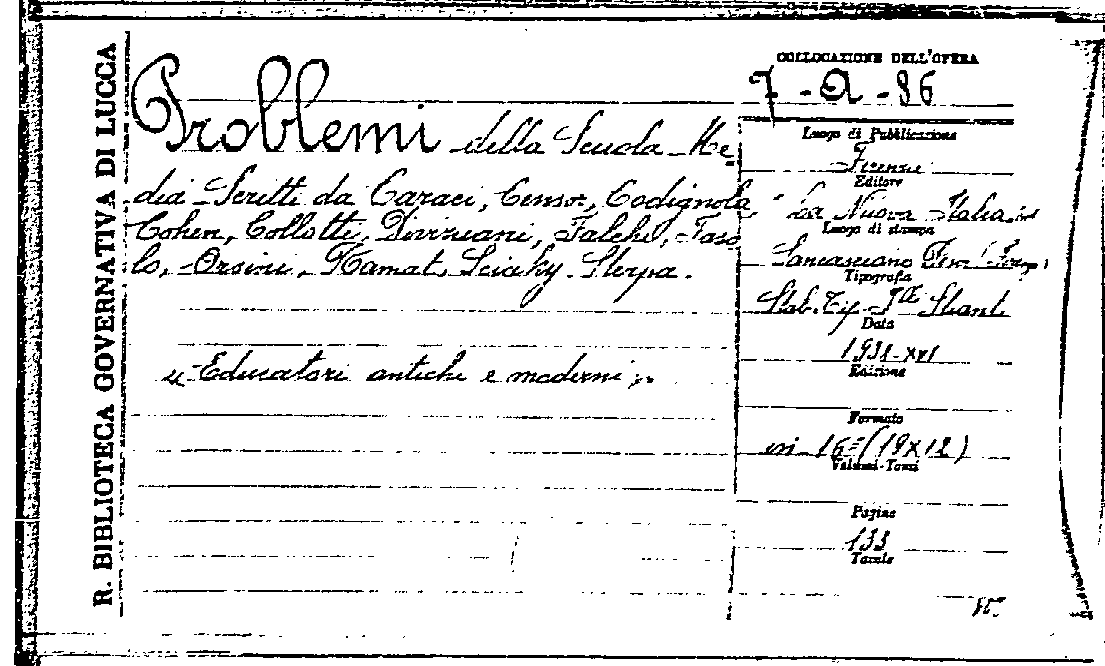 R. BIBLIOTECA GOVERNATIVA DI LUCCA
Problemi della Scuola Me=
dia - Scritti da Caraci, Censor, Codignola
Cohen, Collotti, Diviziani, Falchi, Faso
lo, Orsini, Ramat, Sciaky - Sterpa.
« Educatori antichi e moderni »
COLLOCAZIONE DELL'OPERA
7 - A - 86
Luogo di Pubblicazione
Firenze
Editore
"La Nuova Italia
Luogo di stampa
Sancasciano
Tipografia
Stab. Tip. Stianti
Data
XVI
Edizione
Formato
in 16=(19x12)
Volumi-Tomi
Pagine
133
Tavole